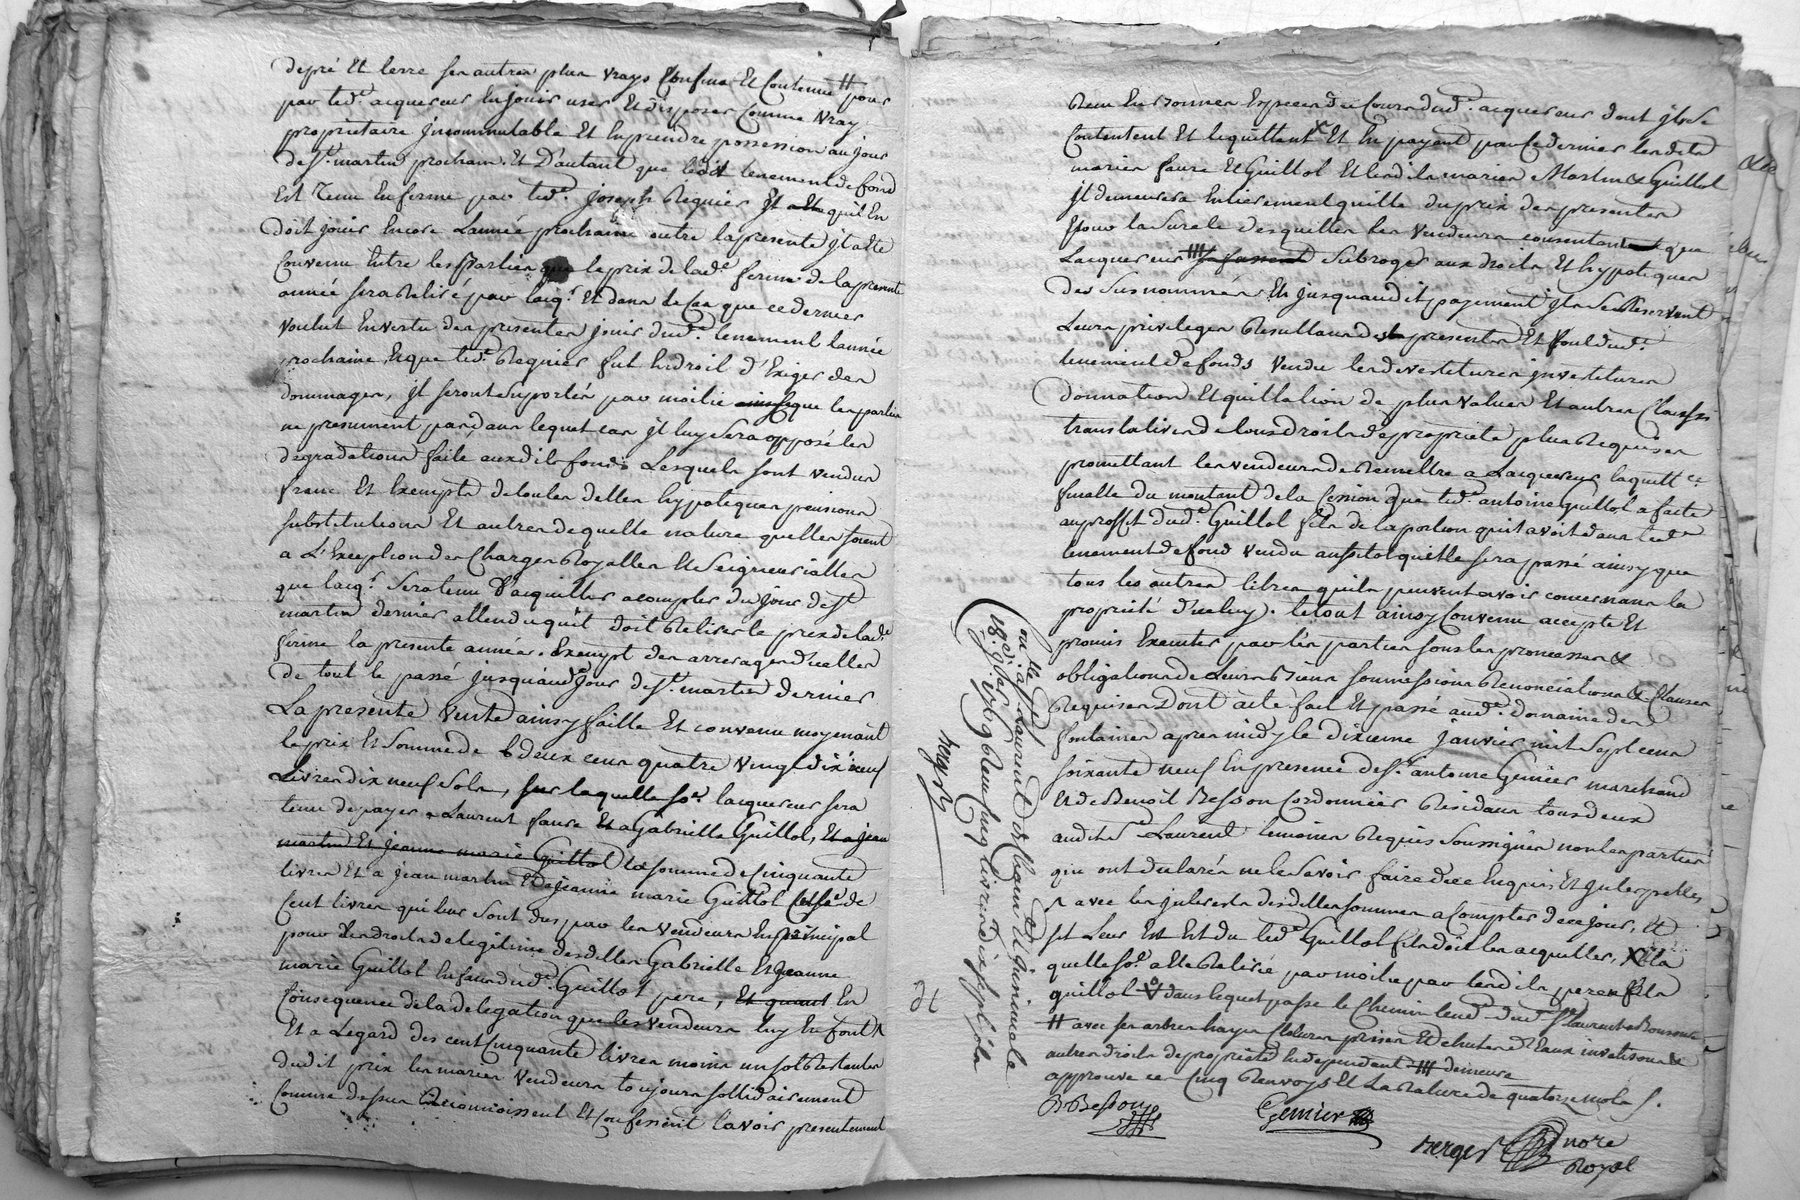 de pré Et terre ses autres plus vrays Confins Et Contenu # pour
par led.t acquereur En jouir user Et disposer Comme vray
proprietaire Jncommutable Et En prendre possession au jour
de s.t martin prochain. Et D'autant que ledit tenement de fond
Est Tenu En ferme par led.t Joseph Regnier Jl qu'il En
doit jouir Encore L'année prochaine outre la presente jl a ete
Convenu Entre les parties que le prix de lad.e ferme de la presente
année sera Retiré par l'acq.r Et dans le Cas que ce dernier
voulut En vertu des presentes jouir dud.t tenement l'année
prochaine Et que led.t Regnier fut En droit d'Exiger des
dommages, jls seront suportés par moitié ainsy que les parties
ne presument pas dans lequel cas jl luy sera opposé les
degradations faites auxdits fonds Lesquels sont vendus
franc Et Exempts de toutes dettes hypoteques pensions
substitutions Et autres de quelle nature quelles soient
a L'Exception des Charges Royalles Et Seigneurialles
que l'acq.r sera tenu d'acquitter a compter du jour de s.t
martin dernier attendu qu'il doit Retirer le prix de lad.e
ferme la presente année. Exempt des arrerages d'icelles
de tout le passé jusqu'aud.t jour de s.t martin dernier
La presente vente ainsy faitte Et convenu moyenant
le prix Et Somme de deux cens quatre vingt dix neuf
Livres dix neuf sols, sur laquelle so.e l'acquereur sera
tenu de payer a Laurent faure Et a Gabrielle Guillot, Et a jean
martin Et jeanne marie Guillot la somme de Cinquante
livres Et a jean martin Et a jeanne marie Guillot celle de
Cent livres qui leur sont dus par les vendeurs En principal
pour les droits de legitime desdittes Gabrielle Et jeanne
marie Guillot Enfans dud.t Guillot pere, Et quant En
Consequence de la delegation que les vendeurs luy En font
Et a L'egard des cent Cinquante livres moins un sol Restantes
dudit prix les mariés vendeurs toujours sollidairement
Comme dessus Reconnoissent Et Confessent l'avoir presentement
Reçu En bonnes Especes du Cours dud.t acquereur dont jls se
Contentent Et le quittent Et En payant par ce dernier lesdits
mariés faure Et Guillot Et lesdits mariés Martin & Guillot
Jl demeurera Entierement quitte du prix des presentes
Et pour la Sureté desquittes les vendeurs consentant que
L'acquereur #### Subrogé aux droits Et hypoteques
des Susnommés Et jusqu'audit payement jls se Reservent
Leurs privileges Resultans des presentes Et sont dud.t
tenement de fonds vendu les devestitures jnvestitures
Donnation Et quittation de plus values Et autres Clauses
translatives de tous droits de propriete plus Requises
promettant les vendeurs de Remettre a L'acquereur la quitt.ce
finalle du montant de la Cession que led.t antoine Guillot a faite
au proffit dud.t Guillot fils de la portion qu'il avoit dans led.t
tenement de fond vendu aussitot qu'elle sera passé ainsy que
tous les autres titres qu'ils peuvent avoir concernans la
propriété d'iceluy. le tout ainsy Convenu accepté Et
promis Executer par les parties sous les promesses &
obligations de Leurs Biens soumissions Renonciations & Clauses
Requises Dont acte fait Et passé aud.t domaine des
fontaines apres midy le dixieme janvier mil sept cens
soixante neuf En presence de s.r antoine Genier marchand
Et de Benoit Besson Cordonnier Residans tous deux
audit s.t Laurent temoins Requis Soussignés non les parties
qui ont declarés ne le Savoir faire de ce Enquis Et Jnterpellés
^ avec les jnterests desdittes sommes a Compter de ce jour, Et
quelle so.e a ete Retiré par moitié par lesdits pere & fils
guillot dans lequel passe le Chemin tend.t dud.t s.t Laurent a Rousson
# avec ses arbres hayes Clotures prises Et chutes d'Eaux invetison &
autres droits de propriété En dependant #### demeure
approuvé ces Cinq Renvoys Et La Rature de quatorze mots /.
B Besson
Genier
verger
nore
Royal
Con.lé a s.t Laurent de Chamousset
18. 9bre 1769 Reçu Cinq livres dix sept sols
verger